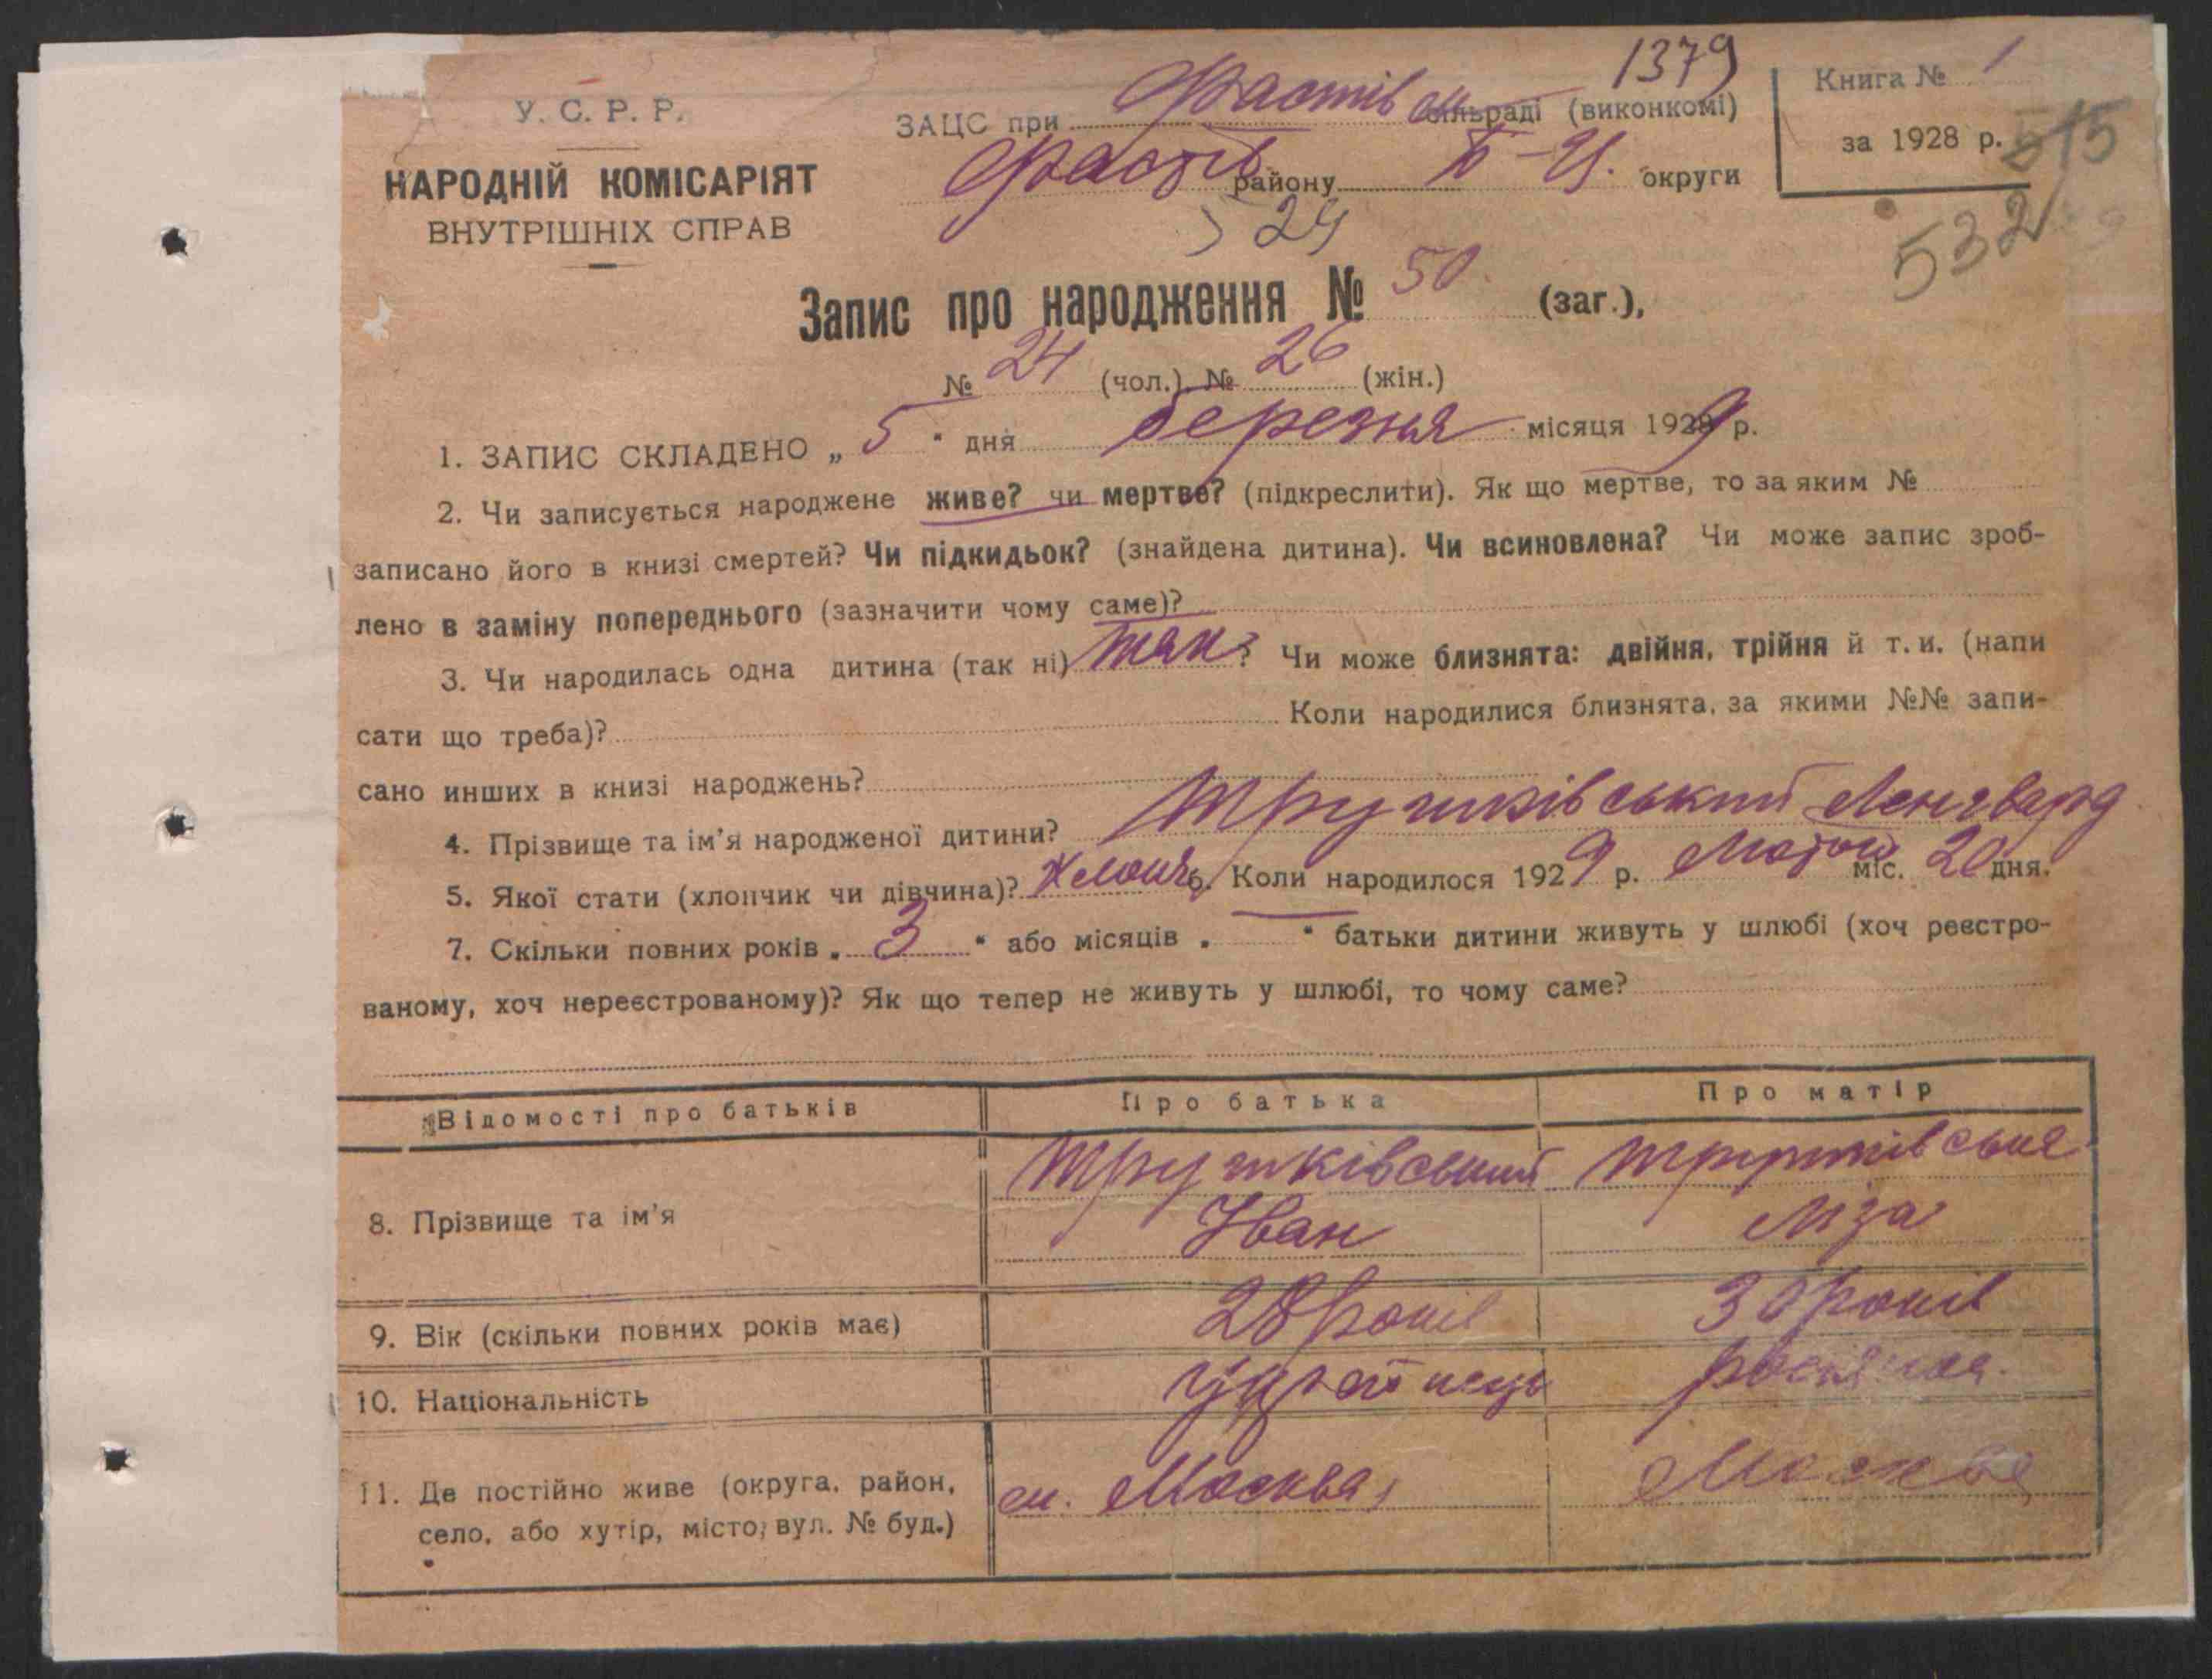 1379
У. С. Р. Р.
ЗАЦС при Фастів сільраді (виконкомі)
Книга № 1
НАРОДНІЙ КОМІСАРІЯТ
Фастів району Б-Ц. округи
за 1928 р. 515
ВНУТРІШНІХ СПРАВ
524
532
Запис про народження № 50 (заг.),
№ 24 (чол.) № 26 (жін.)
1. ЗАПИС СКЛАДЕНО „ 5 " дня березня місяця 1929 р.
2. Чи записується народжене живе? чи мертве? (підкреслити). Як що мертве, то за яким №
записано його в книзі смертей? Чи підкидьок? (знайдена дитина). Чи всиновлена? Чи може запис зроб-
лено в заміну попереднього (зазначити чому саме)?
3. Чи народилась одна дитина (так ні) так? Чи може близнята: двійня, трійня й т. и. (напи
сати що треба)? Коли народилися близнята, за якими №№ запи-
сано инших в книзі народжень?
4. Прізвище та ім'я народженої дитини? Трушківський
5. Якої стати (хлопчик чи дівчина)? Хлопч 6. Коли народилося 1929 р. Лютого міс. 20 дня.
7. Скільки повних років „ 3 " або місяців „ " батьки дитини живуть у шлюбі (хоч реєстро-
ваному, хоч нереєстрованому)? Як що тепер не живуть у шлюбі, то чому саме?
Відомості про батьків Про батька Про матір
8. Прізвище та ім'я
Трушківський Трушківська
Іван Ліза
9. Вік (скільки повних років має) 28 років 30 років
10. Національність українець росіянка.
11. Де постійно живе (округа, район,
село, або хутір, місто, вул. № буд.)
м. Москва, Москва